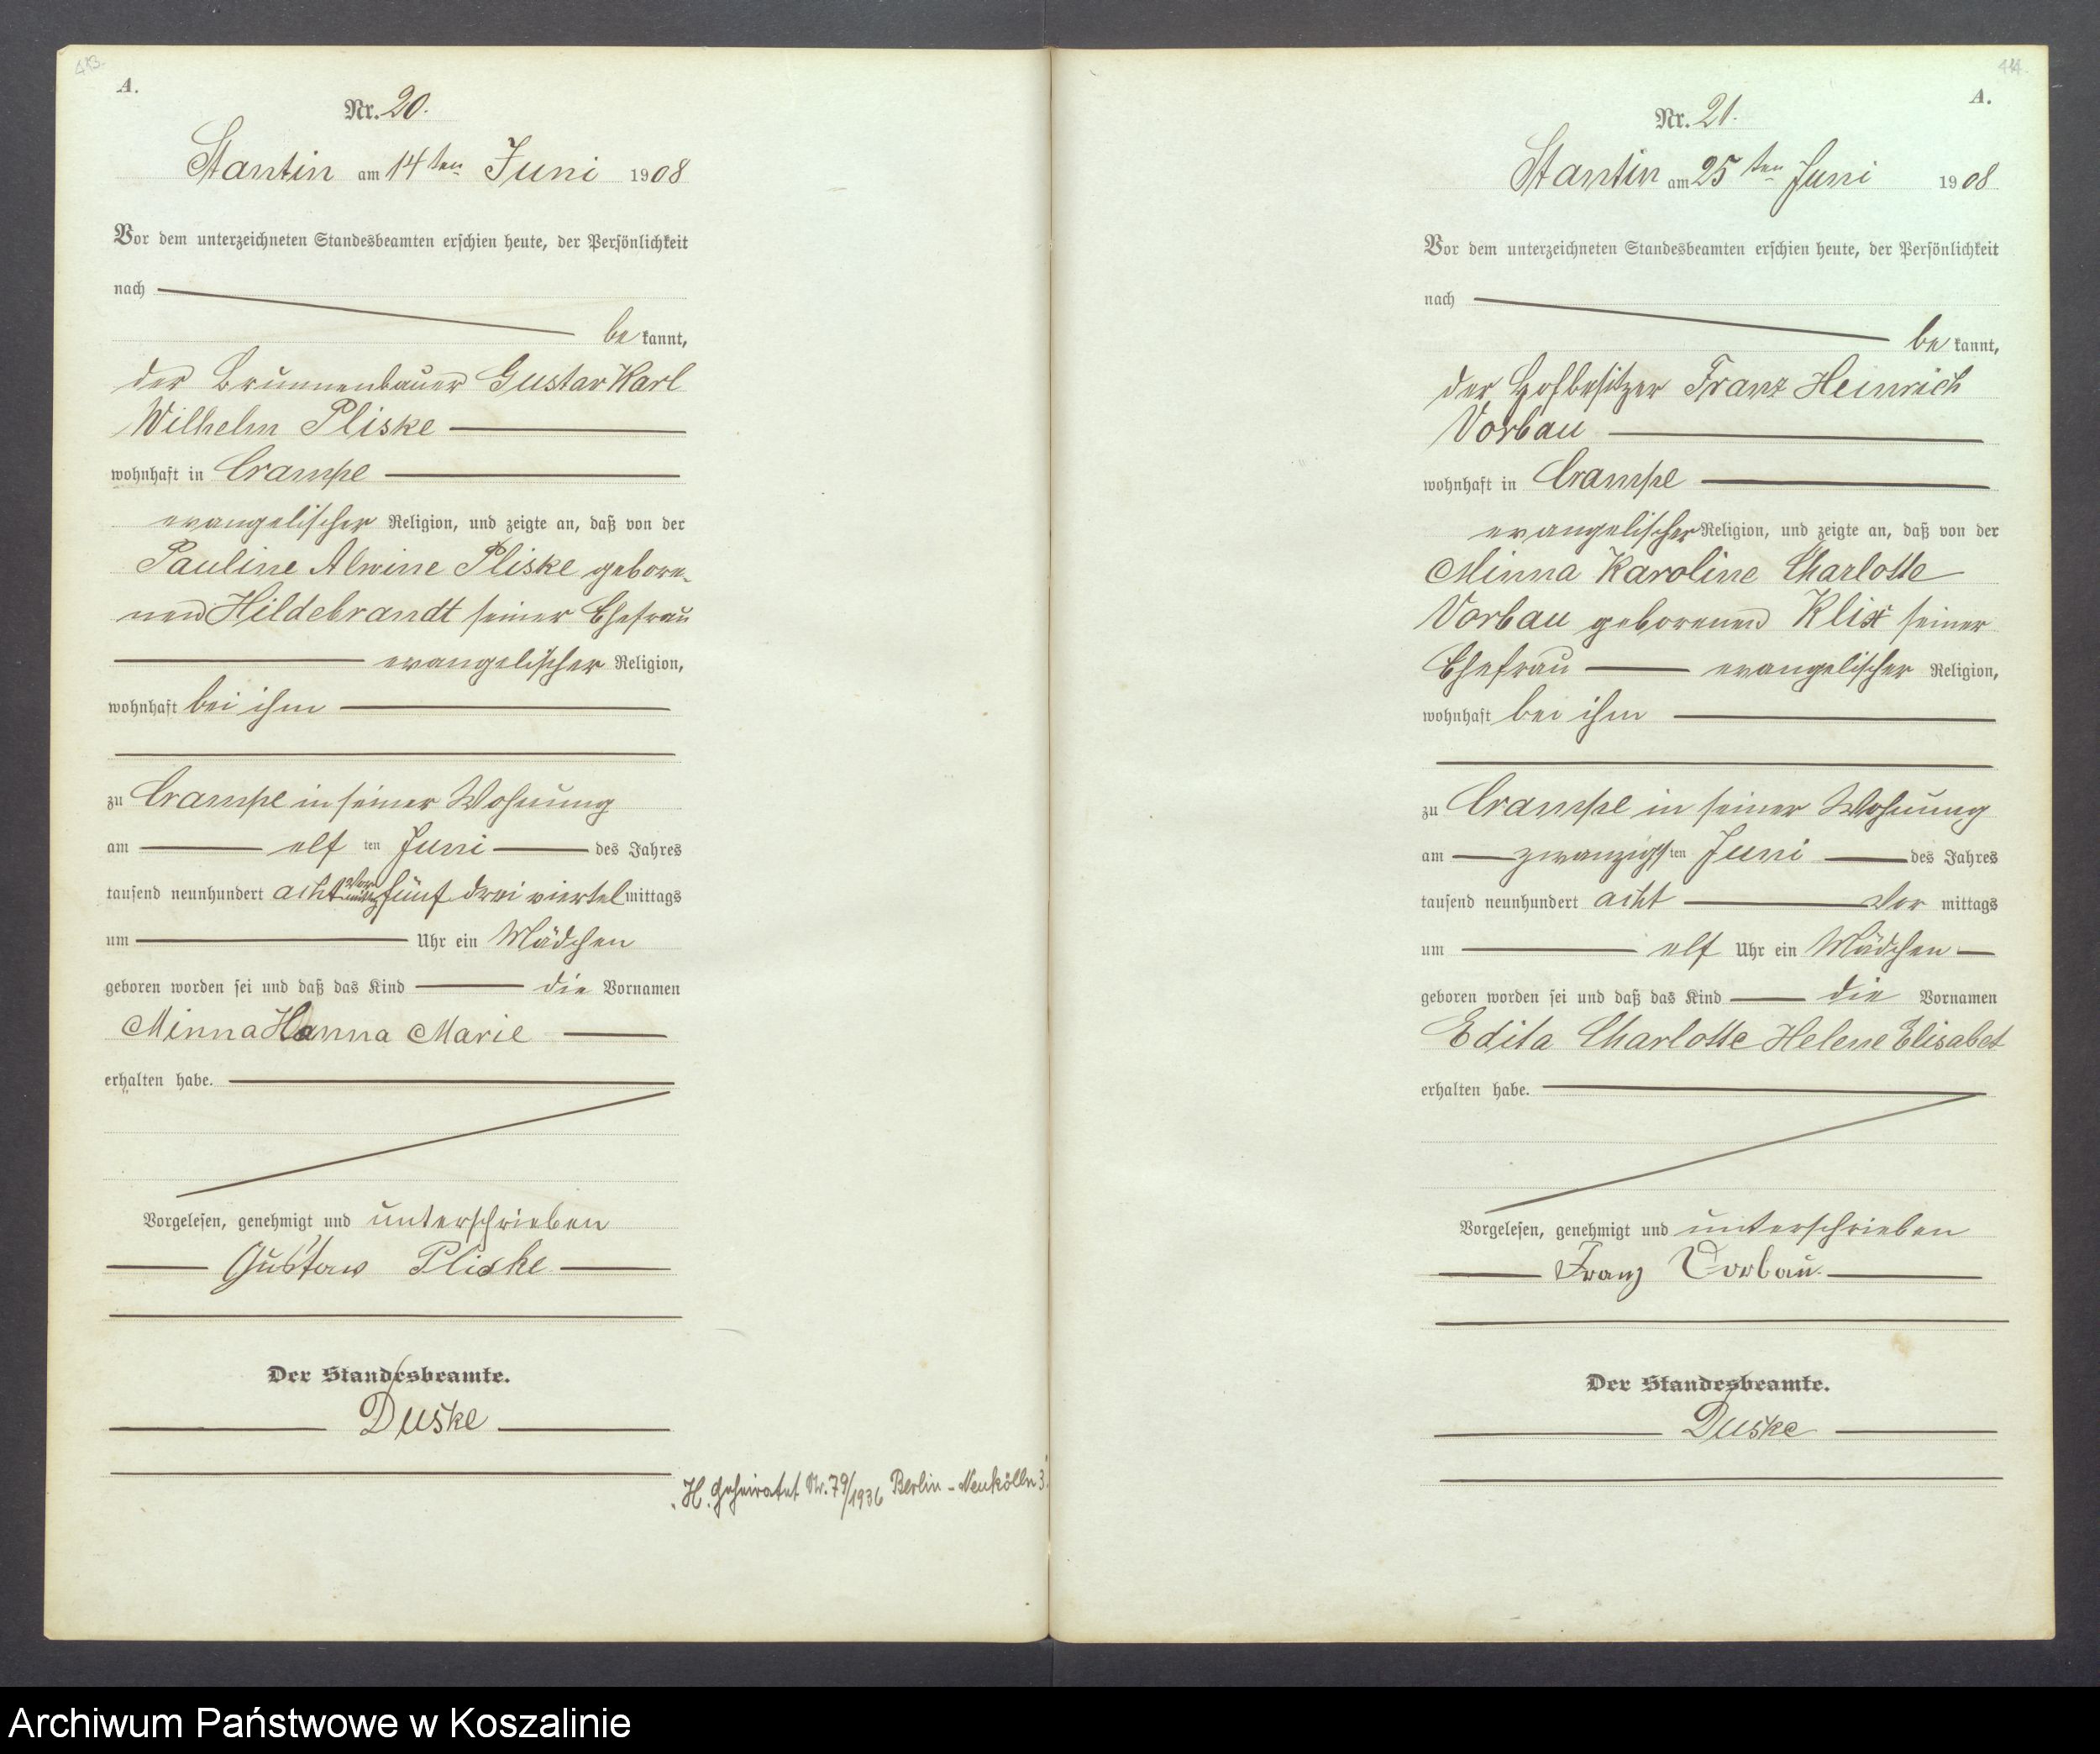 A.
Nr. 20.
Stantin am 14ten Juni 1908
Vor dem unterzeichneten Standesbeamten erschien heute, der Persönlichkeit
nach
be kannt,
der Brunnenbauer Gustav Karl
Wilhelm Pliske
wohnhaft in Crampe
evangelischer Religion, und zeigte an, daß von der
Pauline Alwine Pliske gebore-
nen Hildebrandt seiner Ehefrau
evangelischer Religion,
wohnhaft bei ihm
zu Crampe in seiner Wohnung
am elf ten Juni des Jahres
tausend neunhundert acht Vormittags fünf drei viertel mittags
um Uhr ein Mädchen
geboren worden sei und daß das Kind die Vornamen
Minna Hanna Marie
erhalten habe.
Vorgelesen, genehmigt und unterschrieben
Gustaw Pliske
Der Standesbeamte.
Duske
H. geheiratet Nr. 79/1936 Berlin-Neukölln 3.
A.
Nr. 21.
Stantin am 25ten Juni 1908
Vor dem unterzeichneten Standesbeamten erschien heute, der Persönlichkeit
nach
be kannt,
der Hofbesitzer Franz Heinrich
Vorbau
wohnhaft in Crampe
evangelischer Religion, und zeigte an, daß von der
Minna Karoline Charlotte
Vorbau geborenen Klix seiner
Ehefrau evangelischer Religion,
wohnhaft bei ihm
zu Crampe in seiner Wohnung
am zwanzigsten Juni des Jahres
tausend neunhundert acht Vor mittags
um elf Uhr ein Mädchen
geboren worden sei und daß das Kind die Vornamen
Edita Charlotte Helene Elisabet
erhalten habe.
Vorgelesen, genehmigt und unterschrieben
Franz Vorbau.
Der Standesbeamte.
Duske
Archiwum Państwowe w Koszalinie